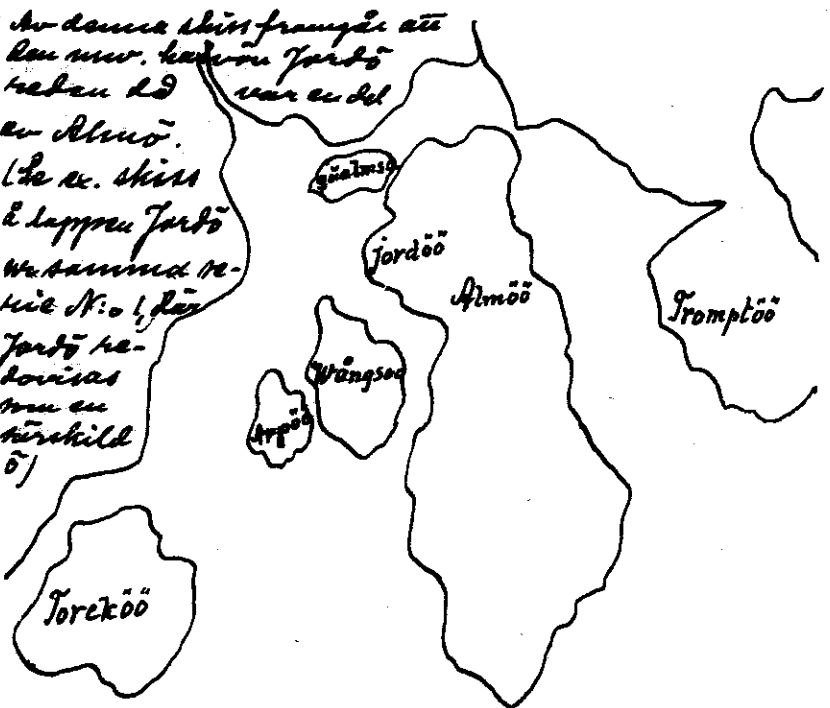 Av denna skiss framgår att
den nuv. halvön Jordö
redan då var en del
av Almö.
(Se ex. skiss
å lappen Jordö
samma se-
rie N:o 1, där
Jordö re-
dovisas
som en
särskild
ö)
gualmsö
jordöö
Almöö
Tromptöö
Wångsoö
Arpöö
Torekӧӧ